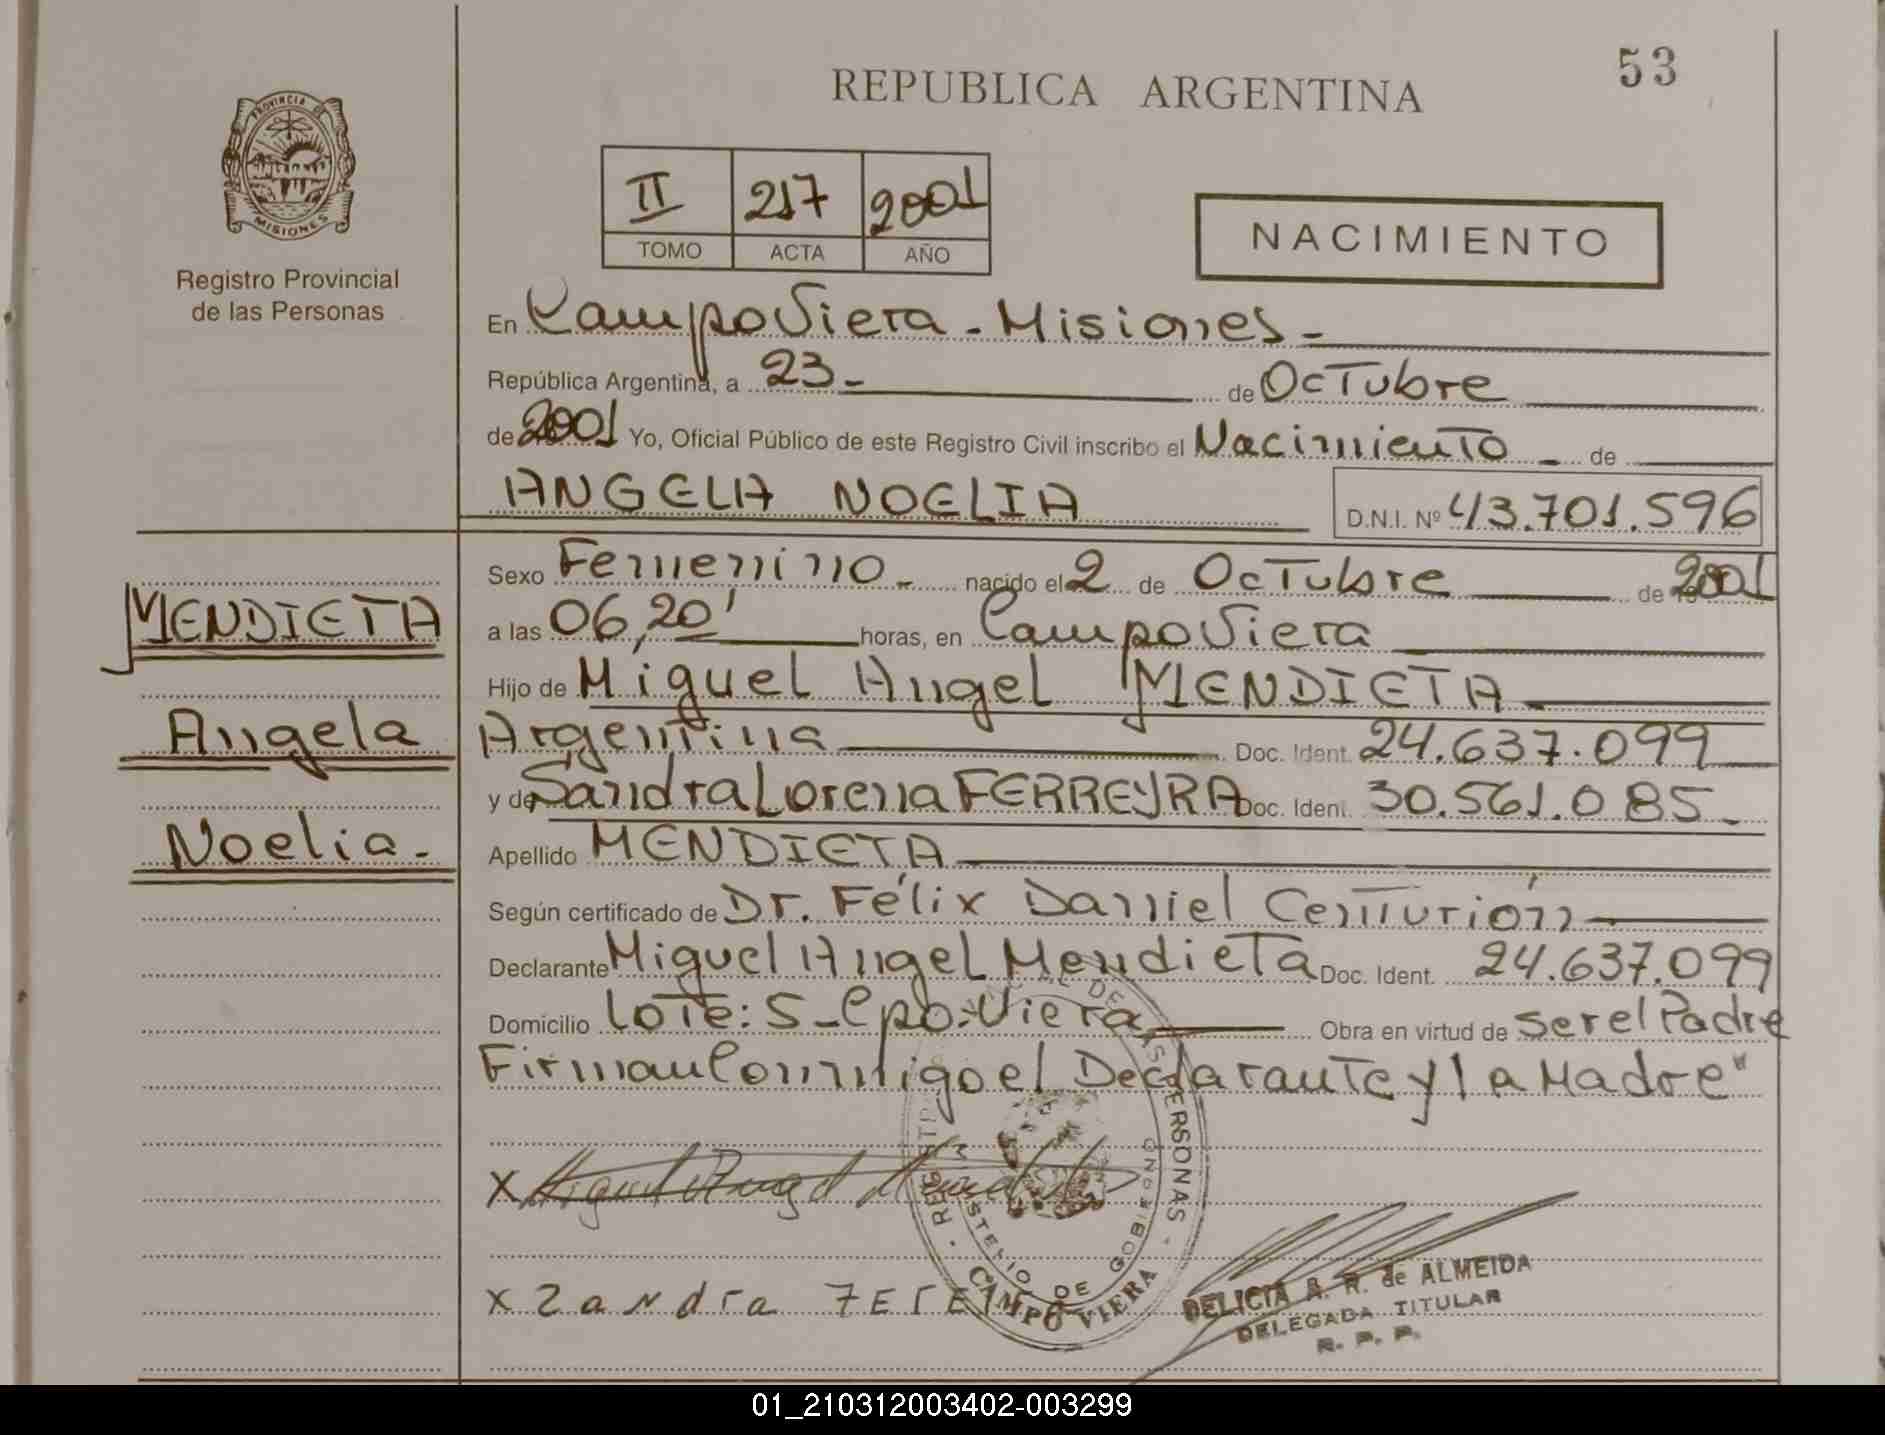 53
REPUBLICA ARGENTINA
PROVINCIA DE
MISIONES
Registro Provincial
de las Personas
II 217 2001
TOMO ACTA AÑO
NACIMIENTO
En Campo Viera - Misiones -
República Argentina, a 23 - de Octubre
de 2001 Yo, Oficial Público de este Registro Civil inscribo el Nacimiento - de
ANGELA NOELIA D.N.I. Nº 43.701.596
Sexo Femenino - nacido el 2 de Octubre de 2001
MENDIETA
a las 06,20' horas, en Campo Viera
Hijo de Miguel Angel MENDIETA -
Angela
Argentina Doc. Ident. 24.637.099
y de Sandra Lorena FERREYRA Doc. Ident. 30.561.085 -
Noelia -
Apellido MENDIETA
Según certificado de Dr. Félix Daniel Centurión
Declarante Miguel Angel Mendieta Doc. Ident. 24.637.099
Domicilio Lote: 5 - Cpo. Viera Obra en virtud de ser el Padre
Firman Conmigo el Declarante y la Madre"
X Miguel Angel
X Zandra
DE LAS PERSONAS
DE GOBIERNO
CAMPO VIERA
DELICIA A. R. de ALMEIDA
DELEGADA TITULAR
R. P. P.
01_210312003402-003299